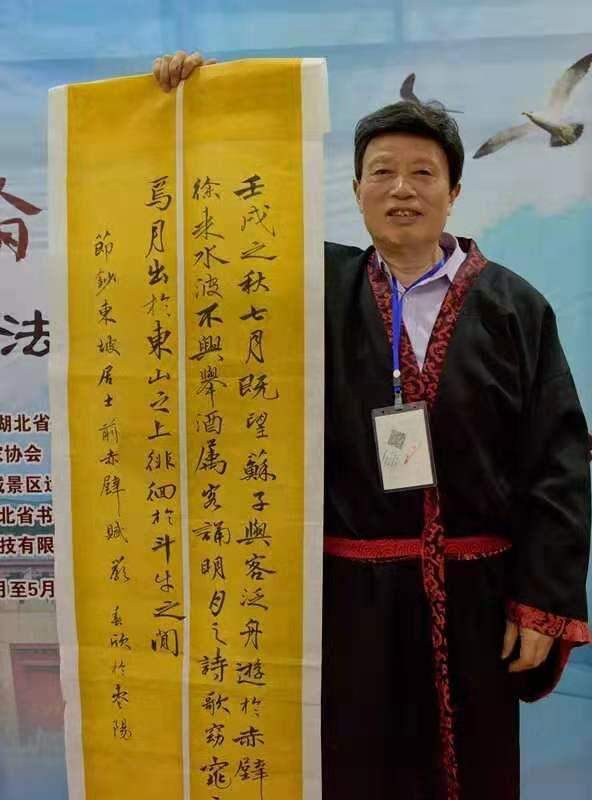 壬戌之秋七月既望蘇子與客泛舟遊於赤壁
徐来水波不興舉酒属客誦明月之詩歌窈窕之
焉月出於東山之上徘徊於斗牛之間
節鈔東坡居士前赤壁賦 嚴春欣於枣陽
法
湖北省
协会
城景区
北省书
技有限
月至5月